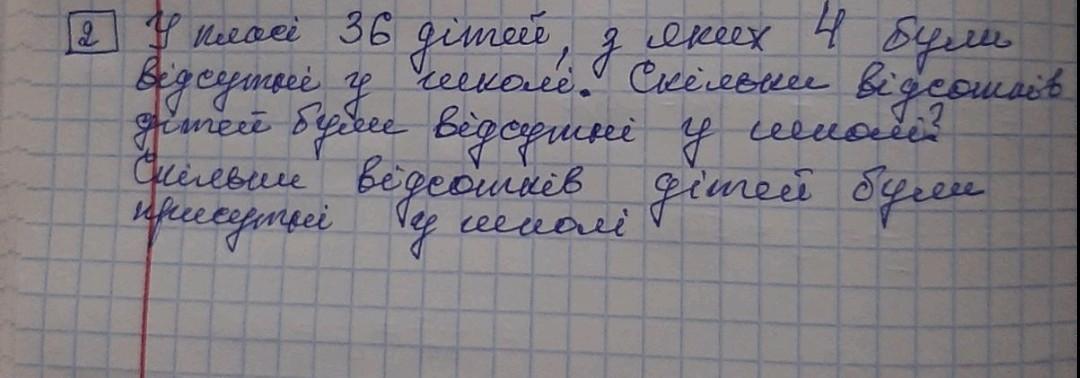 2 У класі 36 дітей, з яких 4 були
відсутні у школі. Скільки відсотків
дітей були відсутні у школі?
Скільки відсотків дітей були
присутні у школі